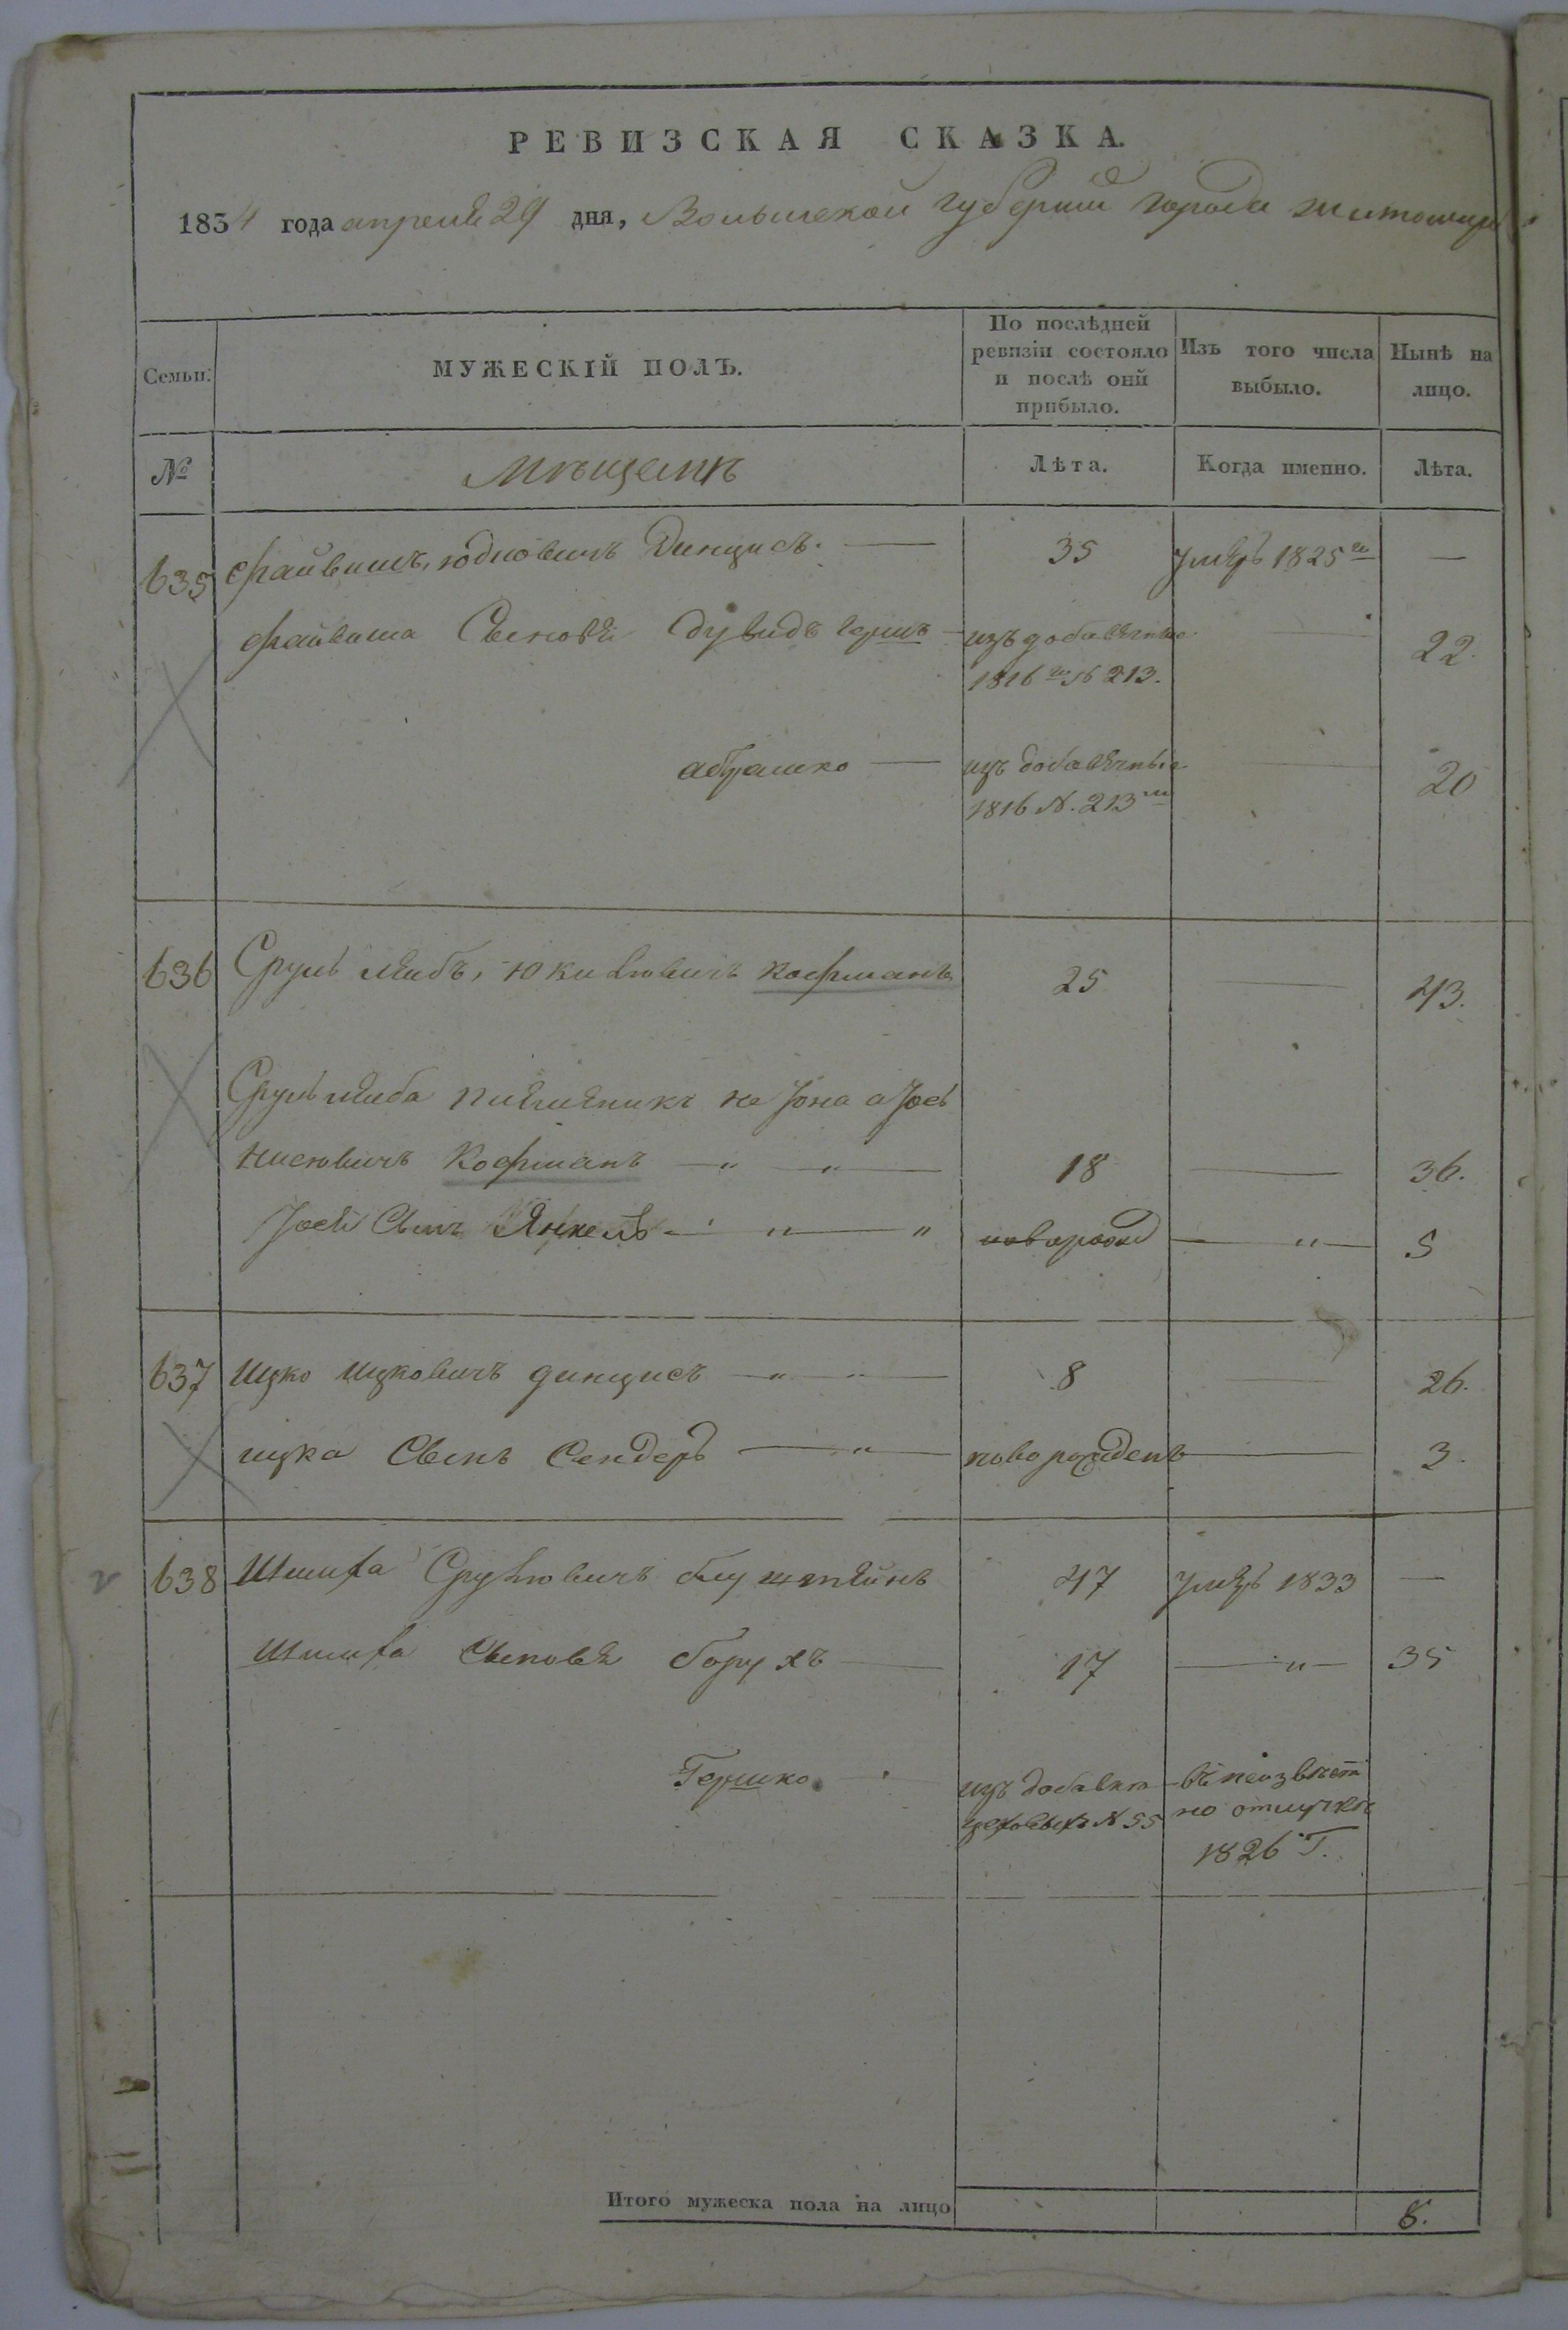 РЕВИЗСКАЯ СКАЗКА.
1834 года апреля 29 дня, Волынской Губернии города житомира
Семьи. МУЖЕСКІЙ ПОЛЪ. По послѣдней ревизіи состояло и послѣ оній прибыло. Изъ того числа выбыло. Нынѣ на лицо.
№ Мѣщанъ Лѣта. Когда именно. Лѣта.
635 Файвишъ, Динцисъ. — 35 умеръ 1825го —
Файвиша Сыновья Дувидъ Гершъ — изъ добавочные — 22.
1816го № 213.
абрамко — изъ добавочные — 20
1816 N. 213
636 Сруль лейбъ, Юкилювичъ Кофманъ 25 — 43.
Сруль лейба племяникъ не Iона а Iось
Нисювичъ Кофманъ — " — " — 18 — 36.
Iося Сынъ Янкель — " — " новорожд — " — 5
637 Ицко ицковичъ динцисъ — " — " — 8 — 26.
ицка Сынъ Сендеръ — " — новорожденъ — 3.
638 Шмиla Срулювичъ блуштейнъ 47 умеръ 1833 —
Сыновья борухъ — 17 — " — 35
Гершко. — изъ добавкы — въ неизвѣст
цеховыхъ N 55 но отлучке
1826 Г.
Итого мужеска пола на лицо 8.